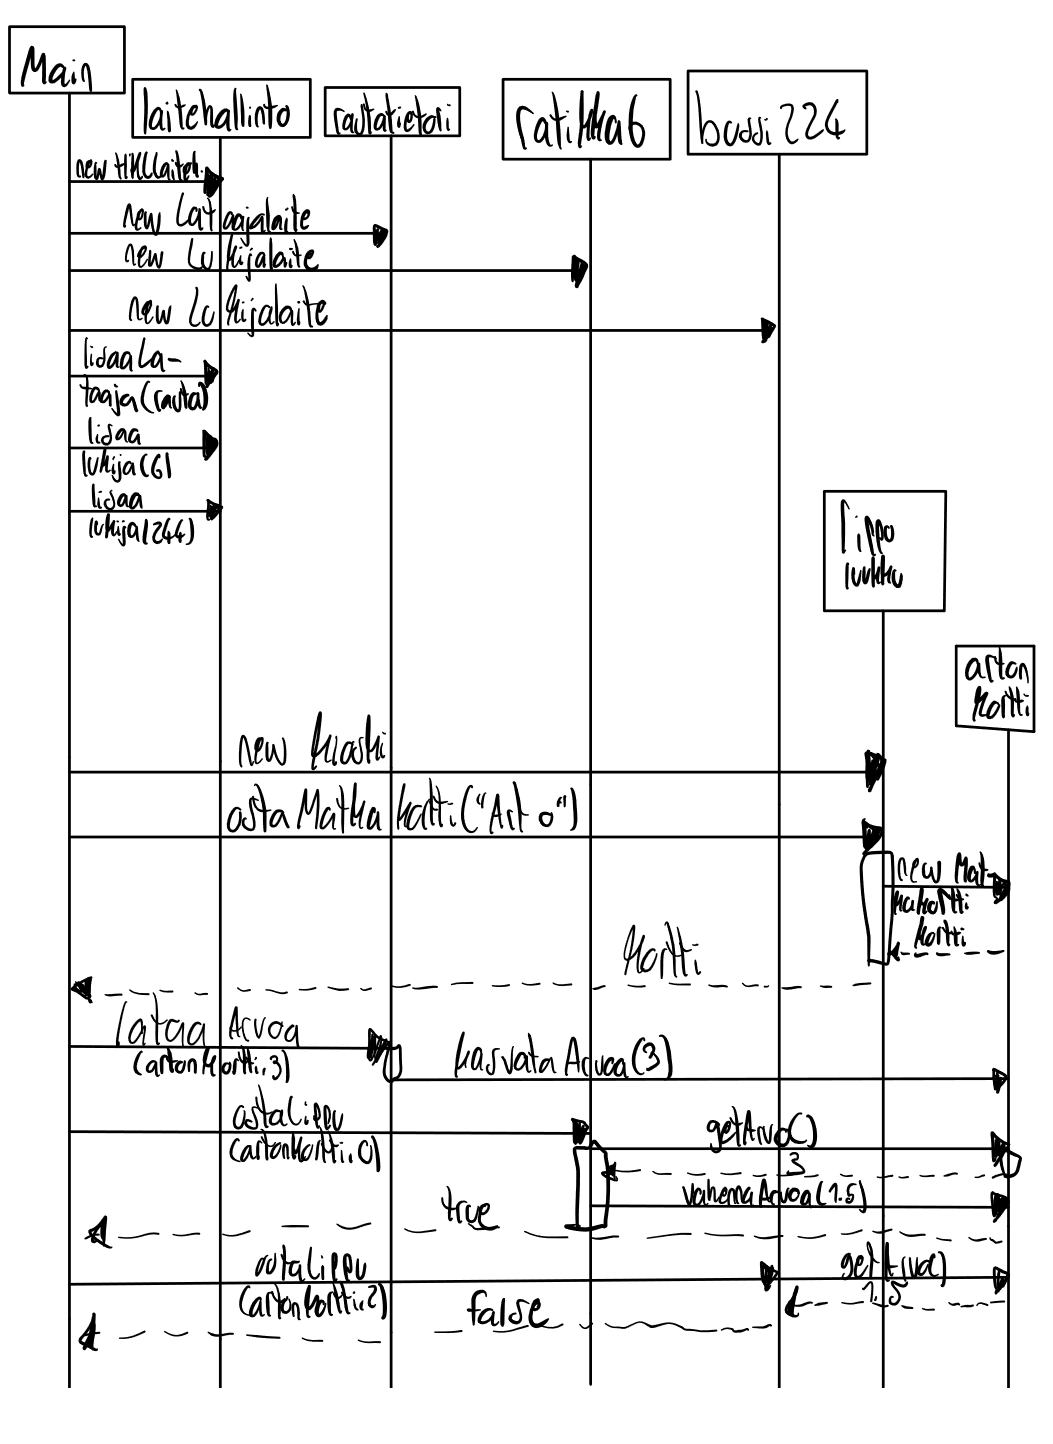 Main
laitehallinto
rautatietori
ratikka6
bussi224
new HKLLaiteh.
new Lataajalaite
new Lukijalaite
new Lukijalaite
lisaaLa-
taaja(rauta)
lisaa
lukija(6)
lisaa
lukija(244)
lippu
luukku
arton
kortti
new kioski
ostaMatkakortti("Arto")
new Mat-
kakortti
kortti
kortti
lataaArvoa
(artonkortti,3)
kasvataArvoa(3)
ostaLippu
(artonkortti,0)
getArvo()
3
vahennaArvoa(1.5)
true
ostaLippu
(artonkortti,2)
getArvo()
1.5
false